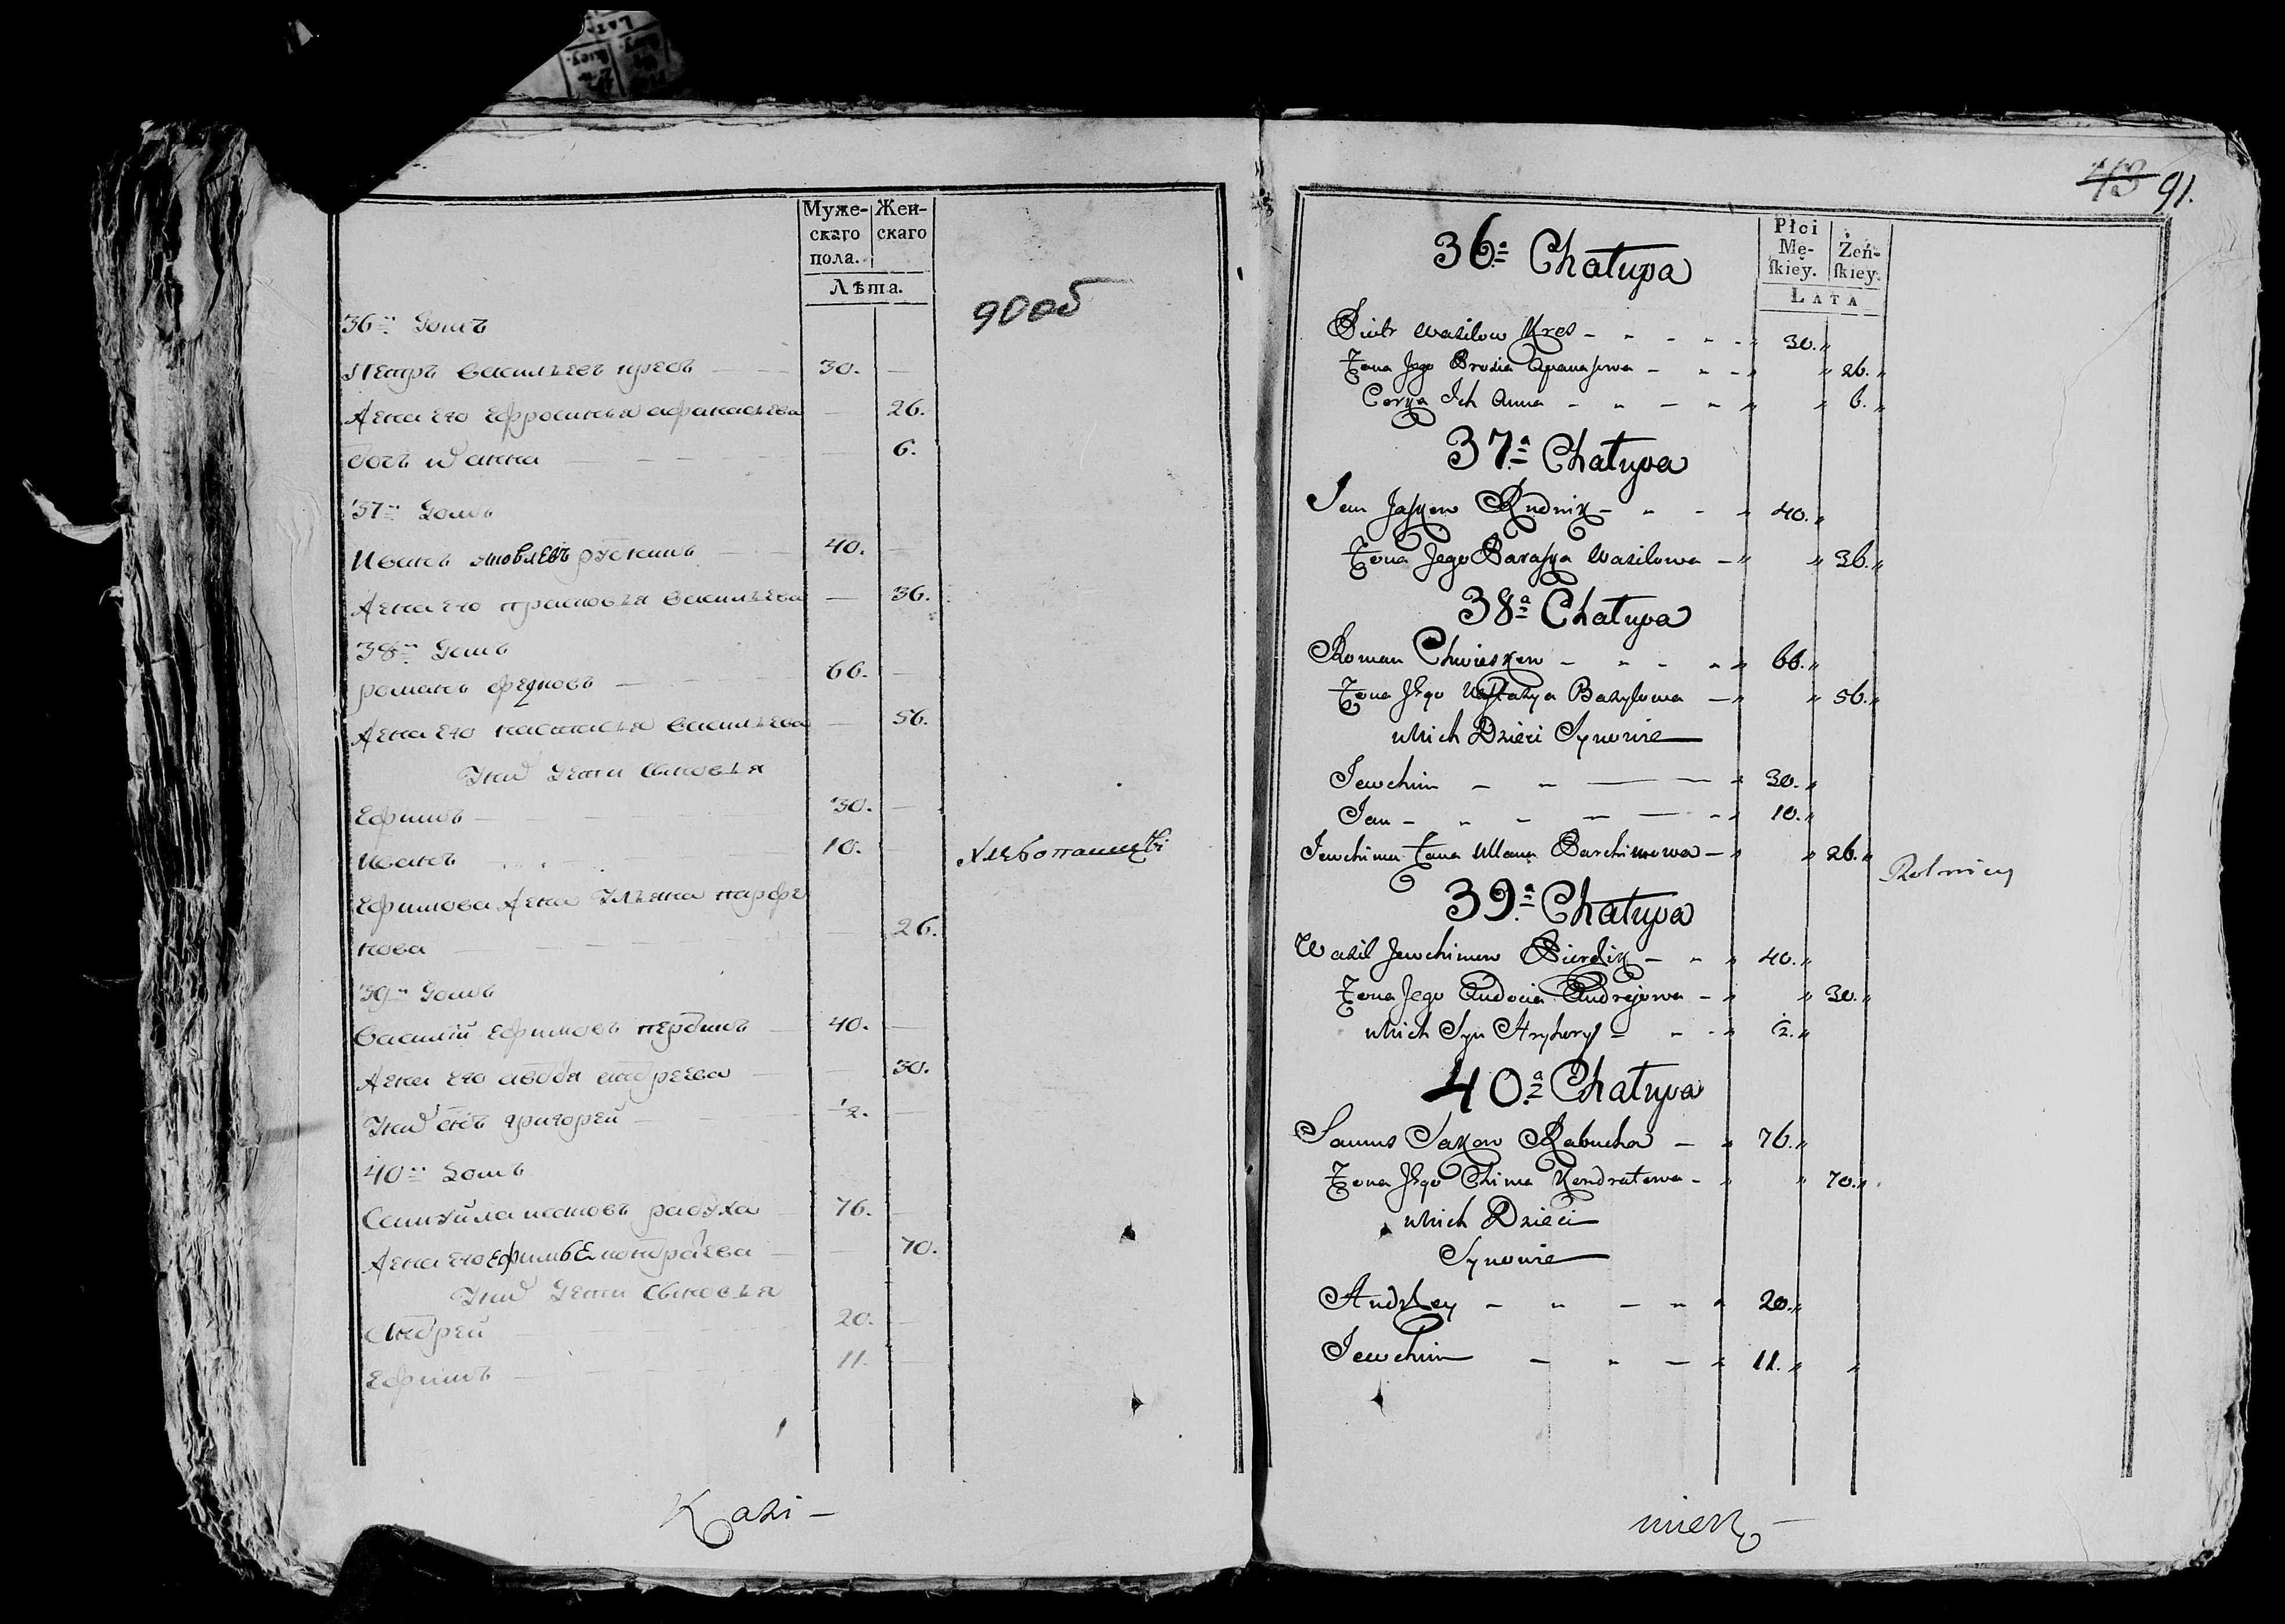 Муже-
скаго
пола.
Жен-
скаго
Лѣта.
90об
36й Домъ
Петръ Васильевъ кресъ 30.
Жена его Ефросинья афанасьева 26.
дочь их анна 6.
37й Домъ
Иванъ яковлевъ 40.
Жена его прасковья Васильева 36.
38й Домъ
романъ 66.
Жена его настасья Васильева 56.
Ихъ дети сыновья
Ефимъ 30.
Иванъ 10.
Хлебопашцы
Ефимова Жена Ульяна парфе
нова 26.
39й Домъ
Василий Ефимовъ пердикъ 40.
Жена его авдотья андреева 30.
Ихъ сынъ григорей ½.
40й Домъ
Самуйла исаковъ рабуха 76.
Жена его Ефимья кондратьева 70.
Ихъ дети сыновья
Андрей 20.
Ефимъ 11.
Kazi-
43 91.
Płci
Mę-
skiey.
Żeń-
skiey.
LATA
36a Chałupa
Piotr Wasilow Kres 30.
Żona Jego Prosia Apanasowa 26.
Corka Ich Anna 6.
37a Chałupa
Jan Jaskow Rudnik 40.
Żona Jego Paraska Wasilowa 36.
38a Chałupa
Roman Chwieskow 66.
Żona Jego Nastazya Bazylowa 56.
u Nich Dzieci Synowie
Jewchim 30.
Jan 10.
Jewchima Żona Ullana Parchimowa 26.
Rolnicy
39a Chałupa
Wasil Jewchimow Pierdik 40.
Żona Jego Audocia Andrejowa 30.
u Nich Syn Hryhory ½.
40a Chałupa
Samus Sakow Rabucha 76.
Żona Jego Chima Kondratowa 70.
u Nich Dzieci
Synowie
Andrzey 20.
Jewchim 11.
mierz